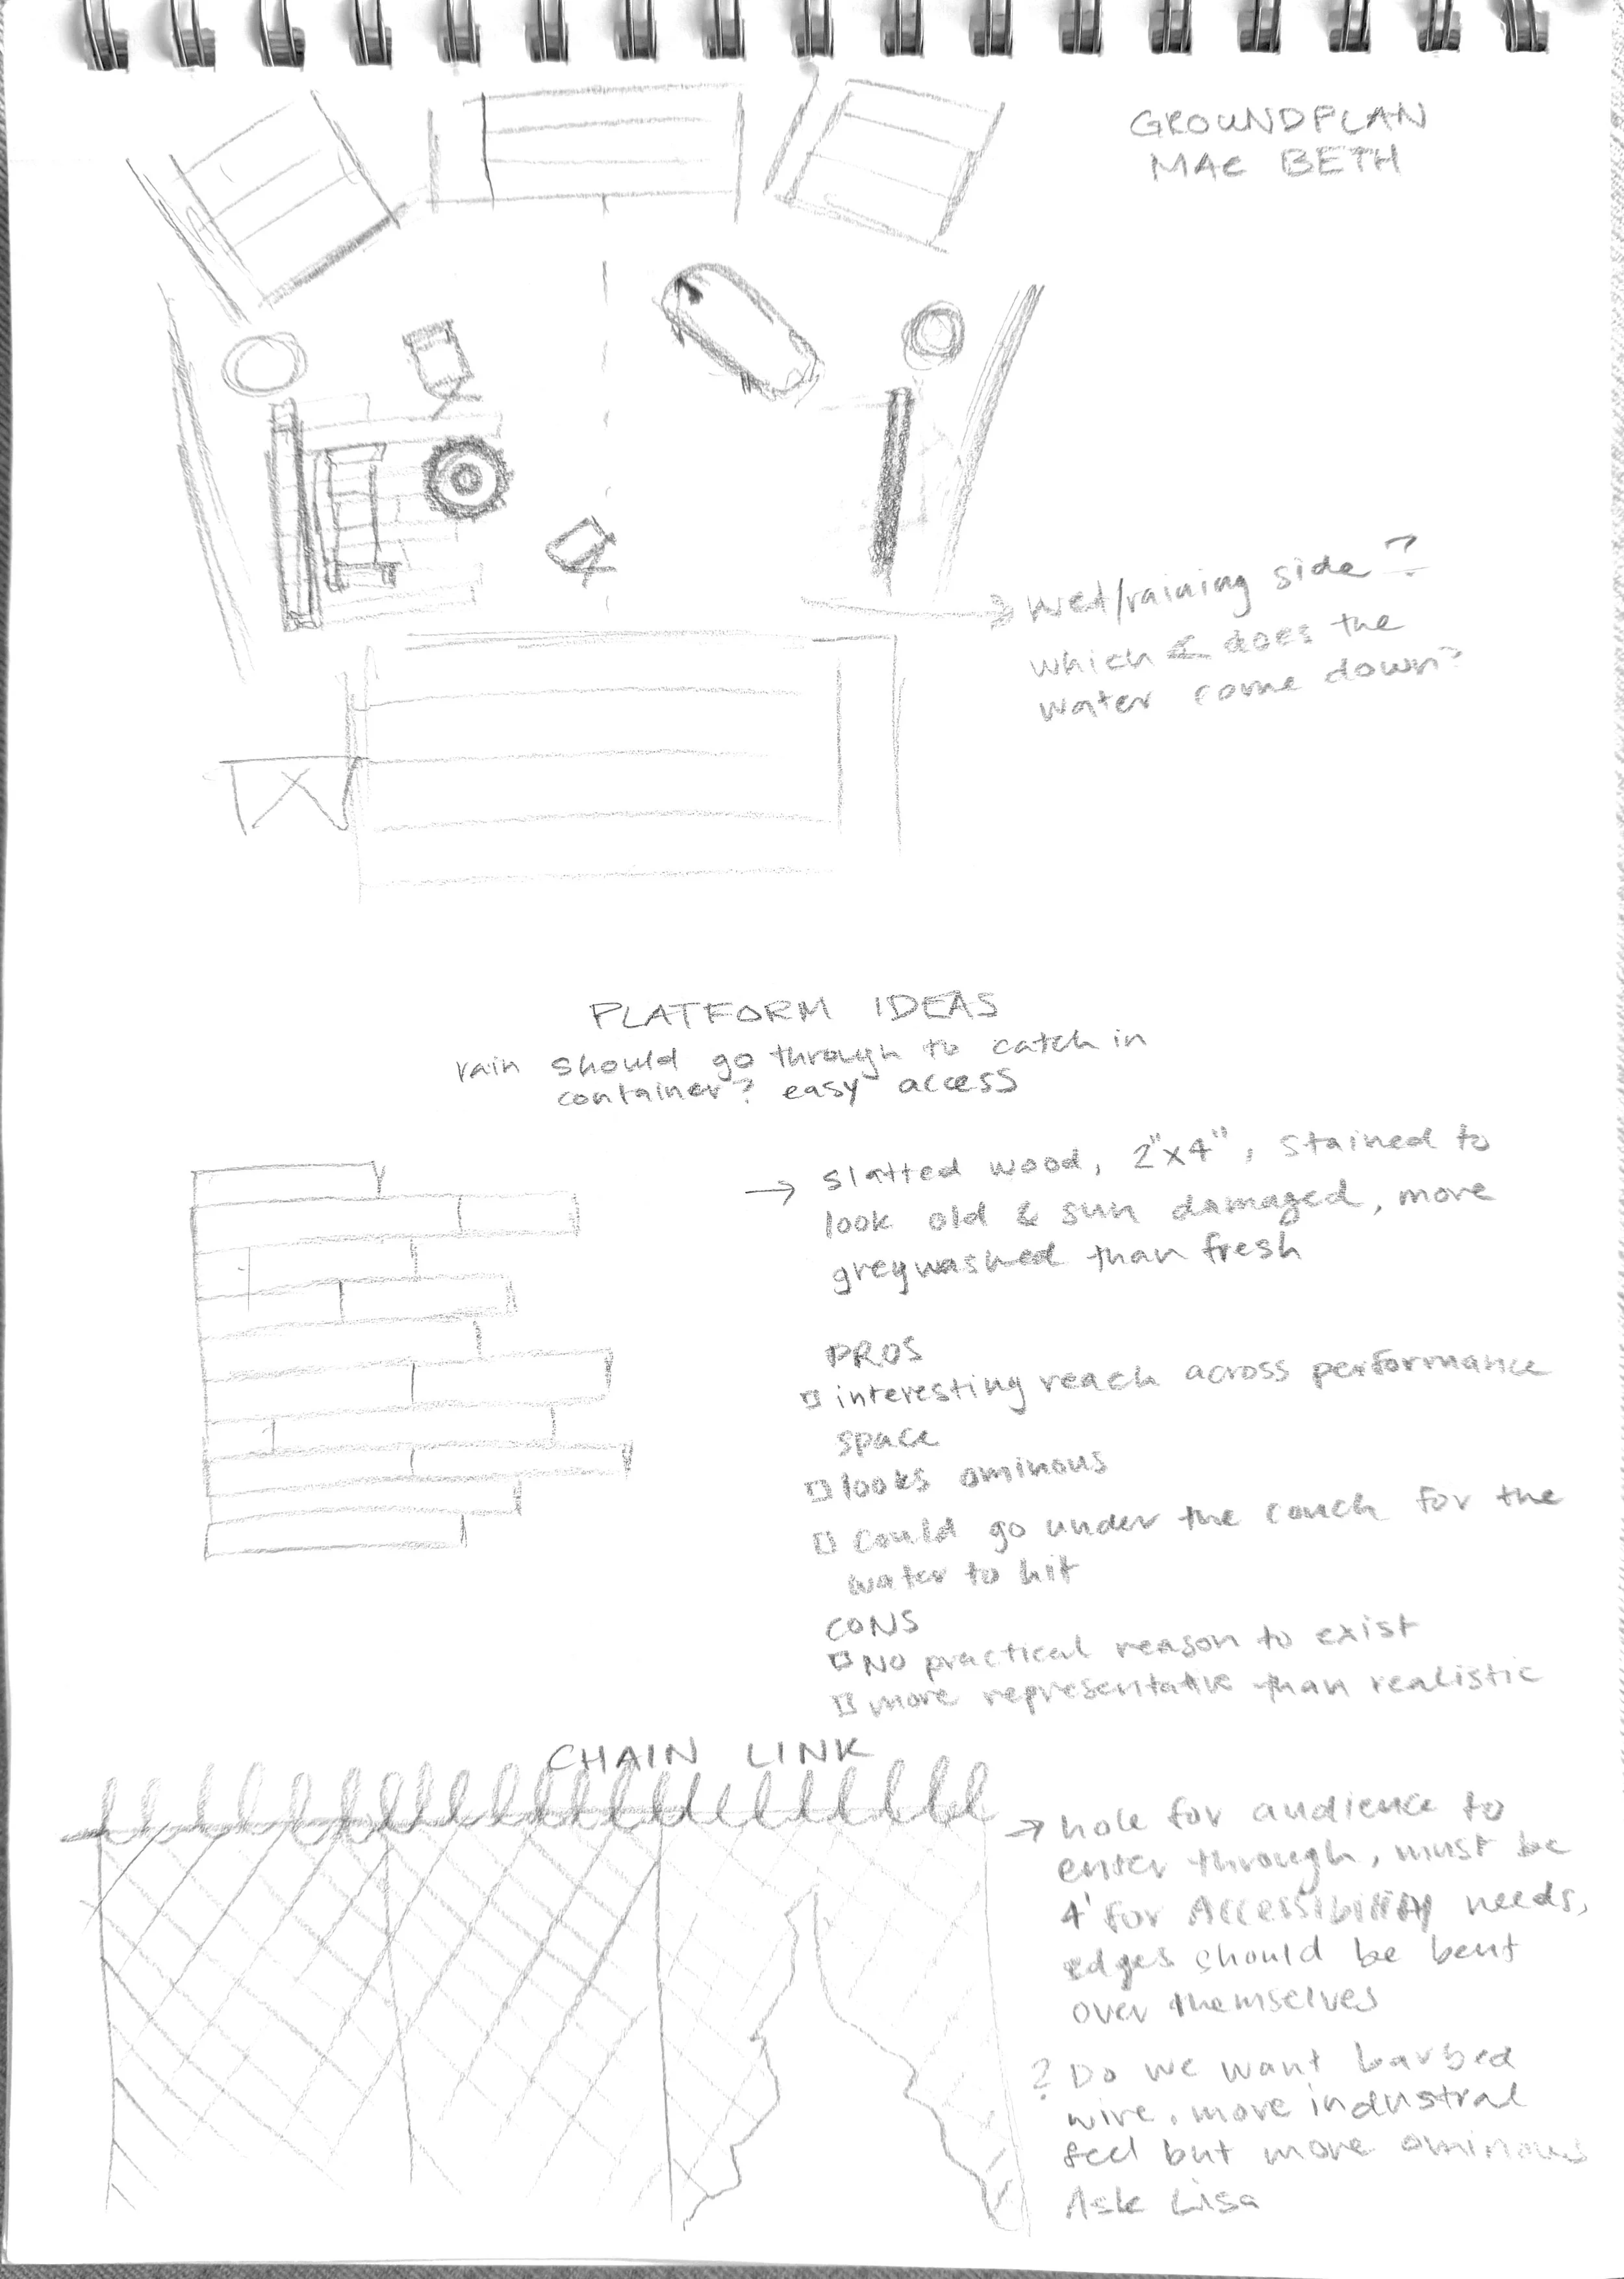 GROUNDPLAN
MAC BETH
wet/raining side?
which does the
water come down?
PLATFORM IDEAS
rain should go through to catch in
container? easy access
→ slatted wood, 2"x4", stained to
look old & sun damaged, more
greywashed than fresh
PROS
□ interesting reach across performance
space
□ looks ominous
□ could go under the couch for the
water to hit
CONS
□ NO practical reason to exist
□ more representative than realistic
CHAIN LINK
→ hole for audience to
enter through, must be
4' for Accessibility needs,
edges should be bent
over themselves
? Do we want barbed
wire, more industral
feel but more ominous
Ask Lisa